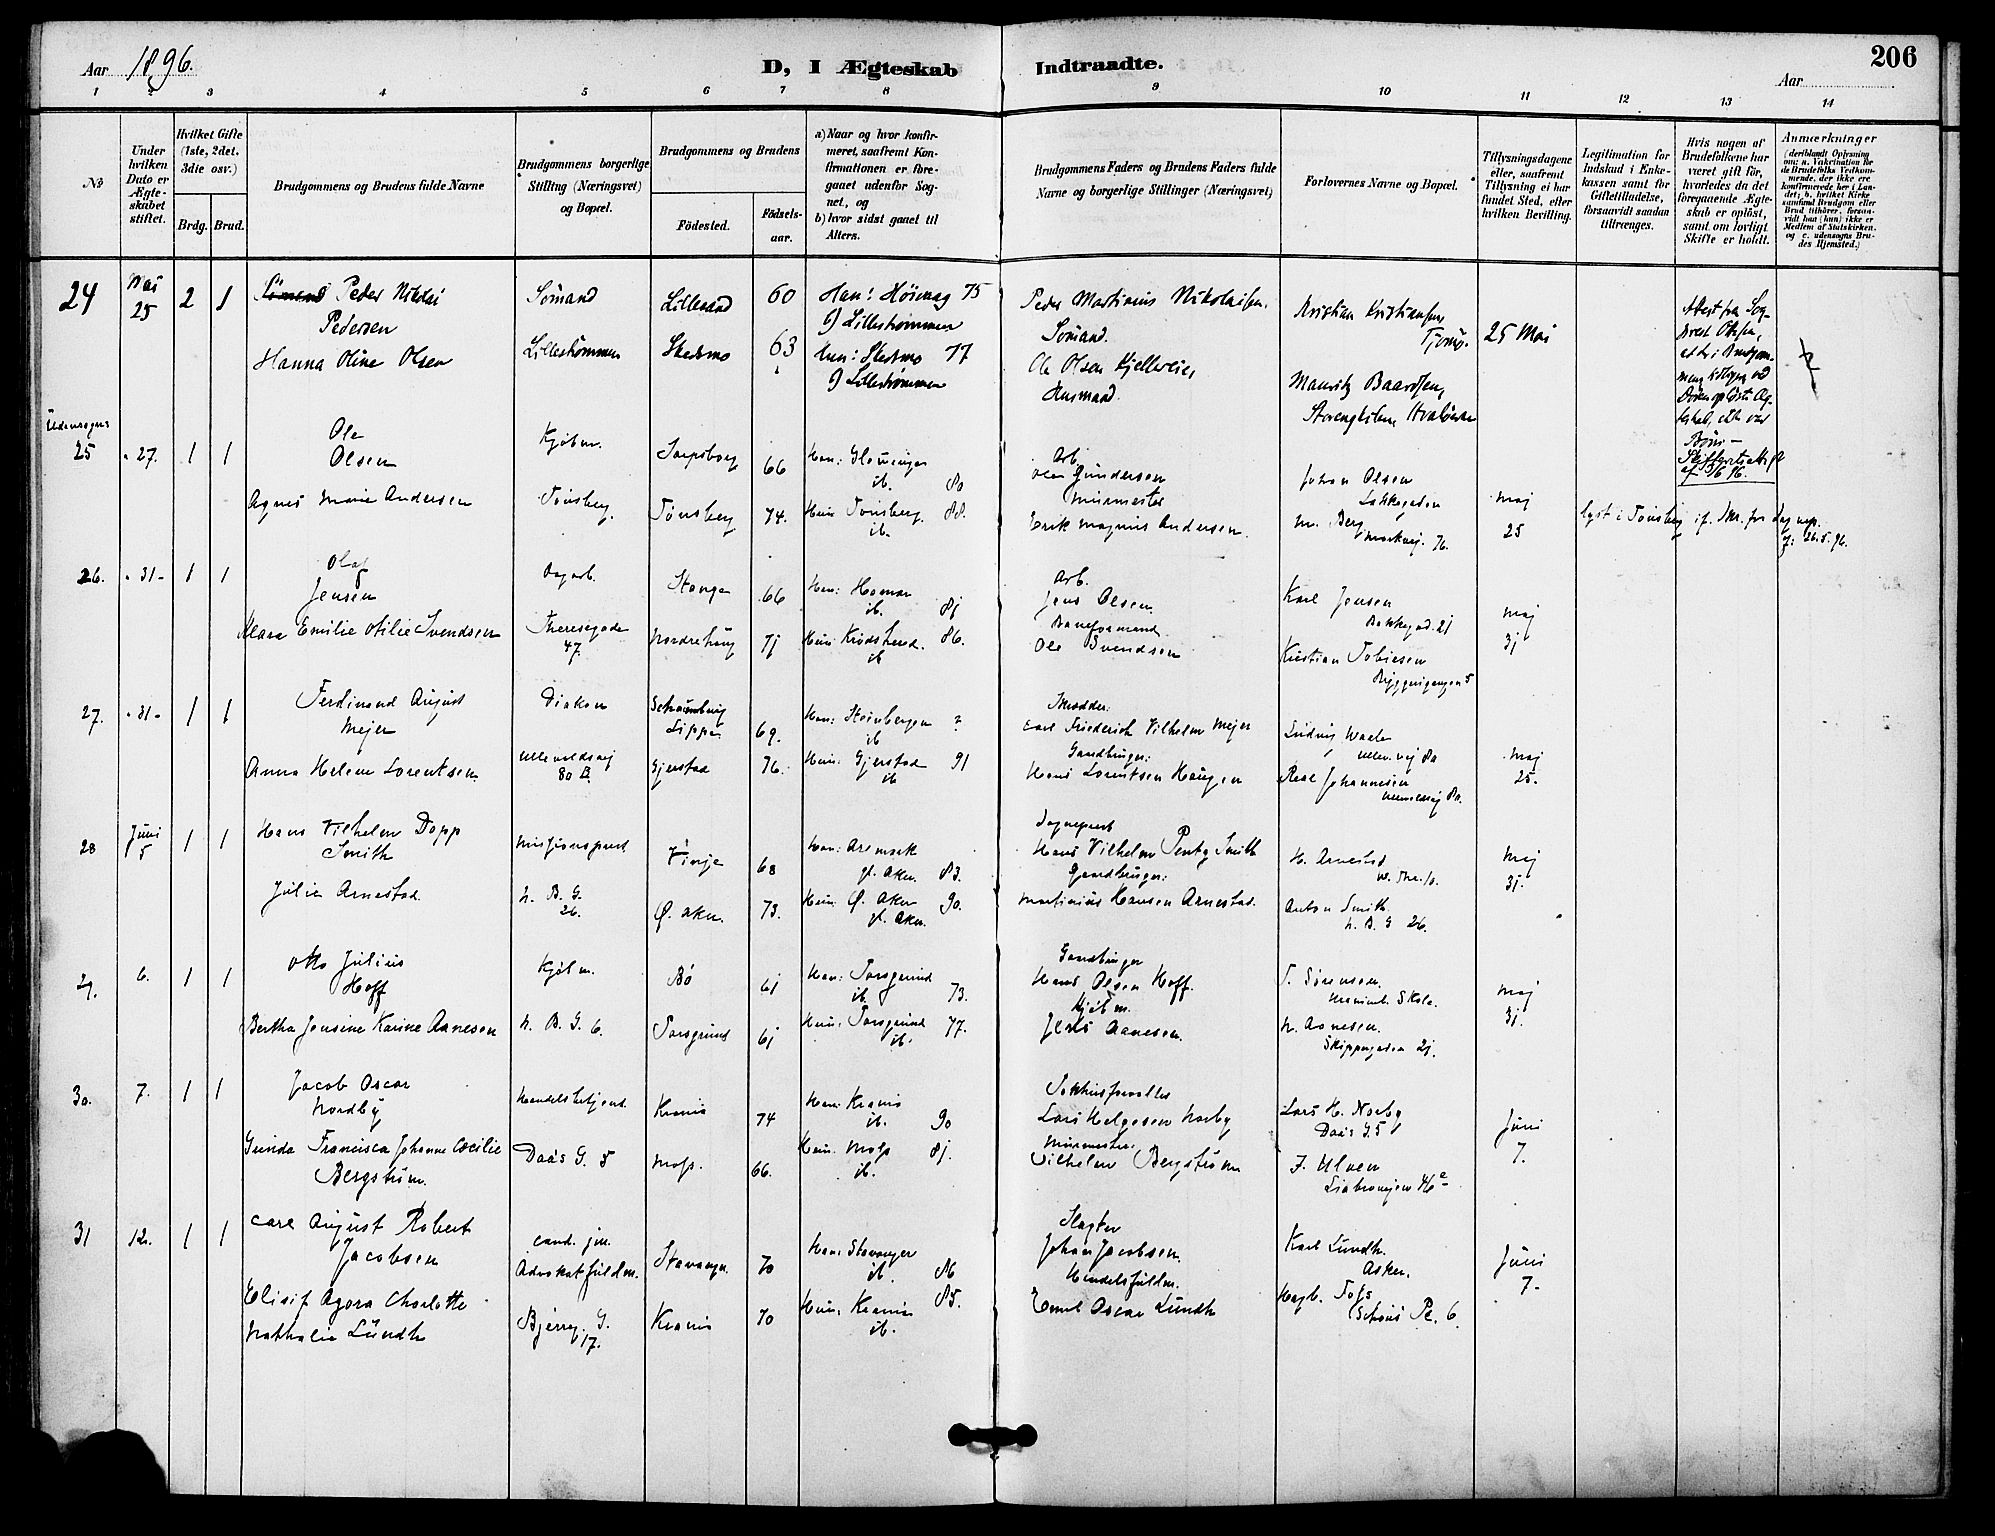 Aar 1896.
D, I Ægteskab Indtraadte.
206
Aar
1 2 3 4 5 6 7 8 9 10 11 12 13 14
No
Under hvilken Dato er Ægteskabet stiftet.
Hvilket Gifte (1ste, 2det, 3die osv.)
Brdg. Brud.
Brudgommens og Brudens fulde Navne
Brudgommens borgerlige Stilling (Næringsvei) og Bopæl.
Brudgommens og Brudens
Fødested.
Fødselsaar.
a) Naar og hvor konfirmeret, saafremt Konfirmationen er foregaaet udenfor Sognet, og
b) hvor sidst gaaet til Alters.
Brudgommens Faders og Brudens Faders fulde Navne og borgerlige Stillinger (Næringsvei)
Forlovernes Navne og Bopæl.
Tillysningsdagene eller, saafremt Tillysning ei har fundet Sted, efter hvilken Bevilling.
Legitimation for Indskud i Enkekassen samt for Giftetilladelse, forsaavidt saadan tiltrænges.
Hvis nogen af Brudefolkene har været gift før, hvorledes da det foregaaende Ægteskab er opløst, samt om lovligt Skifte er holdt.
Anmærkninger
(deriblandt Oplysning om: a. Vakcination for de Brudefolks Vedkommende, der ikke ere konfirmerede her i Landet; b. hvilket Kirkesamfund Brudgom eller Brud tilhører, forsaavidt han (hun) ikke er Medlem af Statskirken, og c. udensogns Brudes Hjemsted.)
24 Mai 25 2 1 Peder Nikolai Pedersen Sømand Lillesand 60 Han: 75
b) Lillestrømmen
Peder Martinius Nikolaisen, Sømand.
Kristian Kristiansen, Tjømø. 25 Mai
Hanna Oline Olsen Lillestrømmen Skedsmo 63 Hun: Skedsmo 77
b) Lillestrømmen
Ole Olsen Husmand.
Mauritz Baardsen,
Udensogns
25 " 27. 1 1 Ole Olsen Kjøbm. Sarpsborg 66 Han: ib. 80
Arb. Gundersen
Johan Olsen
Agnes Marie Andersen Tønsberg. Tønsberg 74. Hun: Tønsberg. ib. 88.
Murmester Erik Magnus Andersen.
M. Berg 76.
Maj 25
lyst i Tønsberg
26.5.96.
26. " 31 - 1 1 Olaf Jensen Dagarb. Stange 66 Han: Hamar ib. 81
Arb. Jens Olsen
Karl Jensen Bakkegad. 21
Klara Emilie Otilie Svendsen Theresegade 47. Norderhoug 71 Hun: Krødsherred. ib 86.
Baneformand. Ole Svendsen
Kristian Tobiesen 5
Maj 31
27. " 31 - 1 1 Ferdinand August Mejer Diakon Schaumburg Lippe 69. Han: Steinbergen ib ?
Skrædder: Carl Friederich Vilhelm Mejer
Ludvig
Anna Helene Lorentsen Ullevoldsvej 80 Gjerstad 76. Hun: Gjerstad ib 91
Gaardbruger: Hans Lorentsen Haugen
Johannesen
Maj 25.
28 Juni 5 1 1 Hans Vilhelm Dopp Smith Missionsprest Vinje 68 Han: Aremark gl. Aker. 83.
Sogneprest Hans Vilhelm Smith
H. Arnestad
Julie Arnestad. N. B. G. 26. Ø. Aker. 73. Hun: Ø. Aker gl. Aker. 90.
Gaardbruger: Martinius Hansen Arnestad.
Anton Smith. N. B. G 26.
Maj 31.
29. 6. 1 1 Otto Julius Hoff Kjøbm. Bø 61 Han: Porsgrund ib. 73.
Gaardbruger Hans Olsen Hoff.
T. Sørensen.
Bertha Jensine Karine Aanesen N. B. G. 6. Porsgrund 61 Hun: Porsgrund ib. 77.
Kjøbm. Jens Aanesen.
N. Aanesen. Skippergaden 21.
Maj 31.
30. 7. 1 1 Jacob Oscar Nordby Handelsbetjent. Krania 74 Han: Krania ib. 90
Pakhusforvalter Lars Helgesen Norby
Lars H. Norby Daas G. 5
Gunda Francisca Johanne Cæcilie Bergstrøm. Daas G. 5 Moss. 66. Hun: Moss ib. 81.
Murmester: Vilhelm Bergstrøm
F. Ulven
Juni 7.
31 12. 1 1 Carl August Robert Jacobsen cand. jur. Advokatfuldm. Stavanger. 70 Han: Stavanger ib. 86
Slagter Johan Jacobsen.
Karl Lundh. Asker.
Elisif Agora Charlotte Nathalie Lundh Bjerreg. G. 17. Krania 70 Hun: Krania ib. 85.
Handelsfuldm. Emil Oscar Lundh
Juni 7.